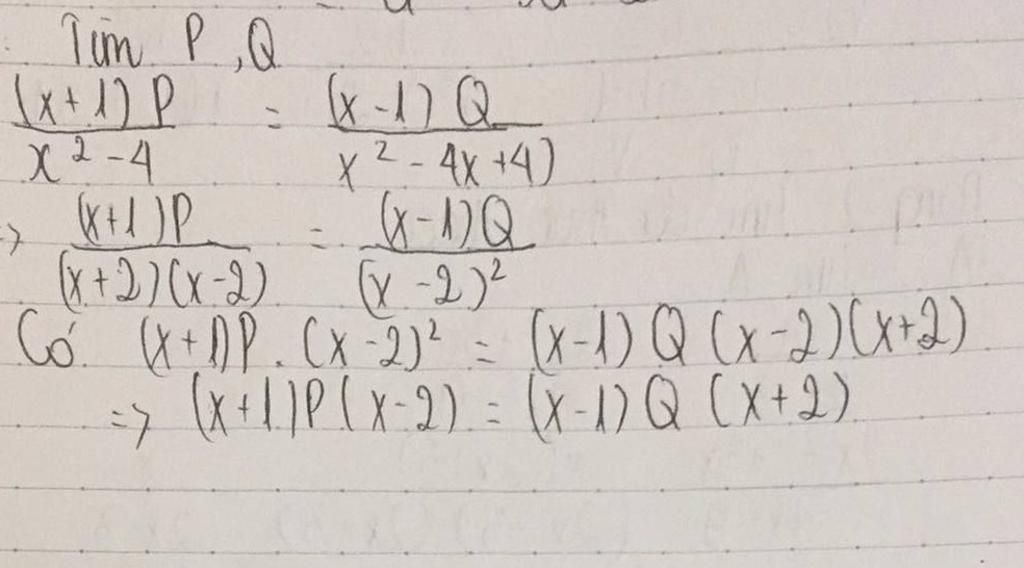 Tìm P, Q
(x+1)P / x² - 4 = (x-1)Q / x² - 4x + 4)
=> (x+1)P / (x+2)(x-2) = (x-1)Q / (x-2)²
Có (x+1)P . (x-2)² = (x-1)Q(x-2)(x+2)
=> (x+1)P(x-2) = (x-1)Q(x+2)